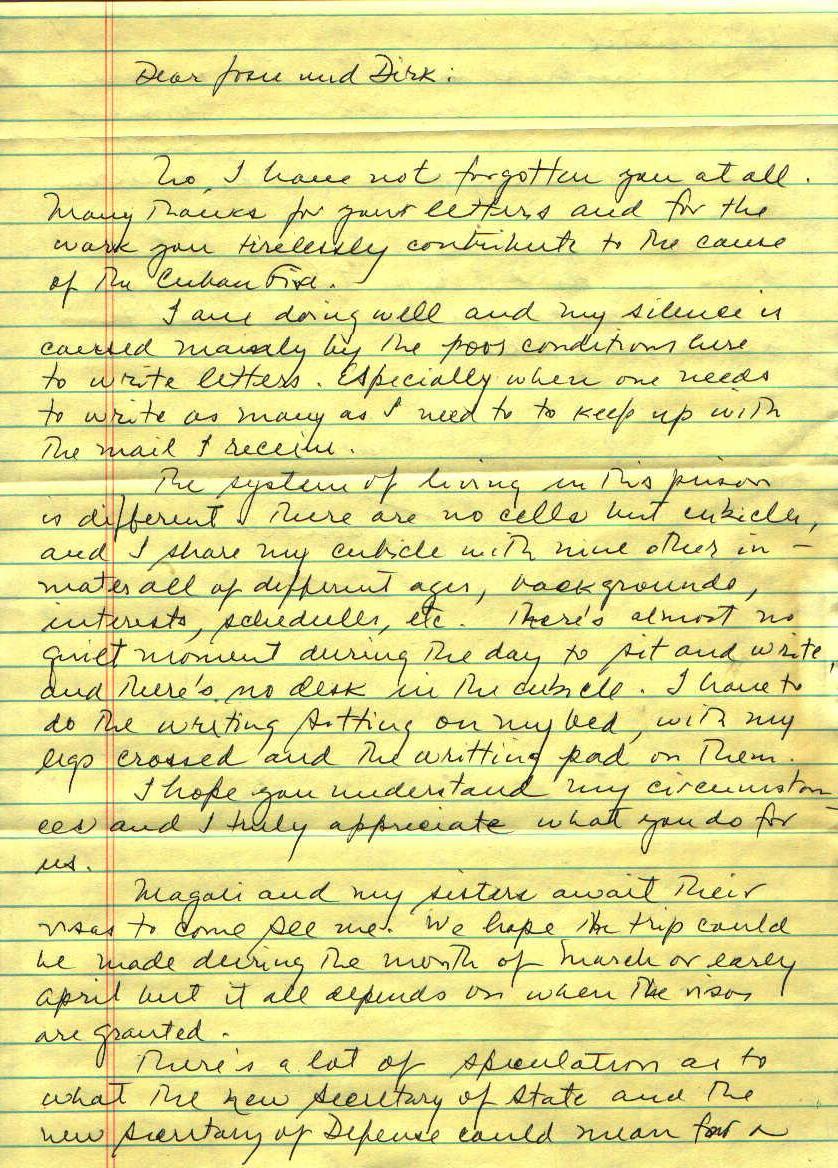 Dear Josie and Dirk:
No, I have not forgotten you at all.
Many thanks for your letters and for the
work you tirelessly contribute to the cause
of the Cuban Five.
I am doing well and my silence is
caused mainly by the poor conditions here
to write letters. Especially when one needs
to write as many as I need to to keep up with
the mail I receive.
The system of living in this prison
is different. There are no cells but cubicles,
and I share my cubicle with nine other in-
mates all of different ages, backgrounds,
interests, schedules, etc. There's almost no
quiet moment during the day to sit and write,
and there's no desk in the cubicle. I have to
do the writing sitting on my bed, with my
legs crossed and the writting pad on them.
I hope you understand my circumstan-
ces and I truly appreciate what you do for
us.
Magali and my sisters await their
visas to come see me. We hope the trip could
be made during the month of March or early
April but it all depends on when the visas
are granted.
There's a lot of speculation as to
what the new Secretary of State and the
new Secretary of Defense could mean for a